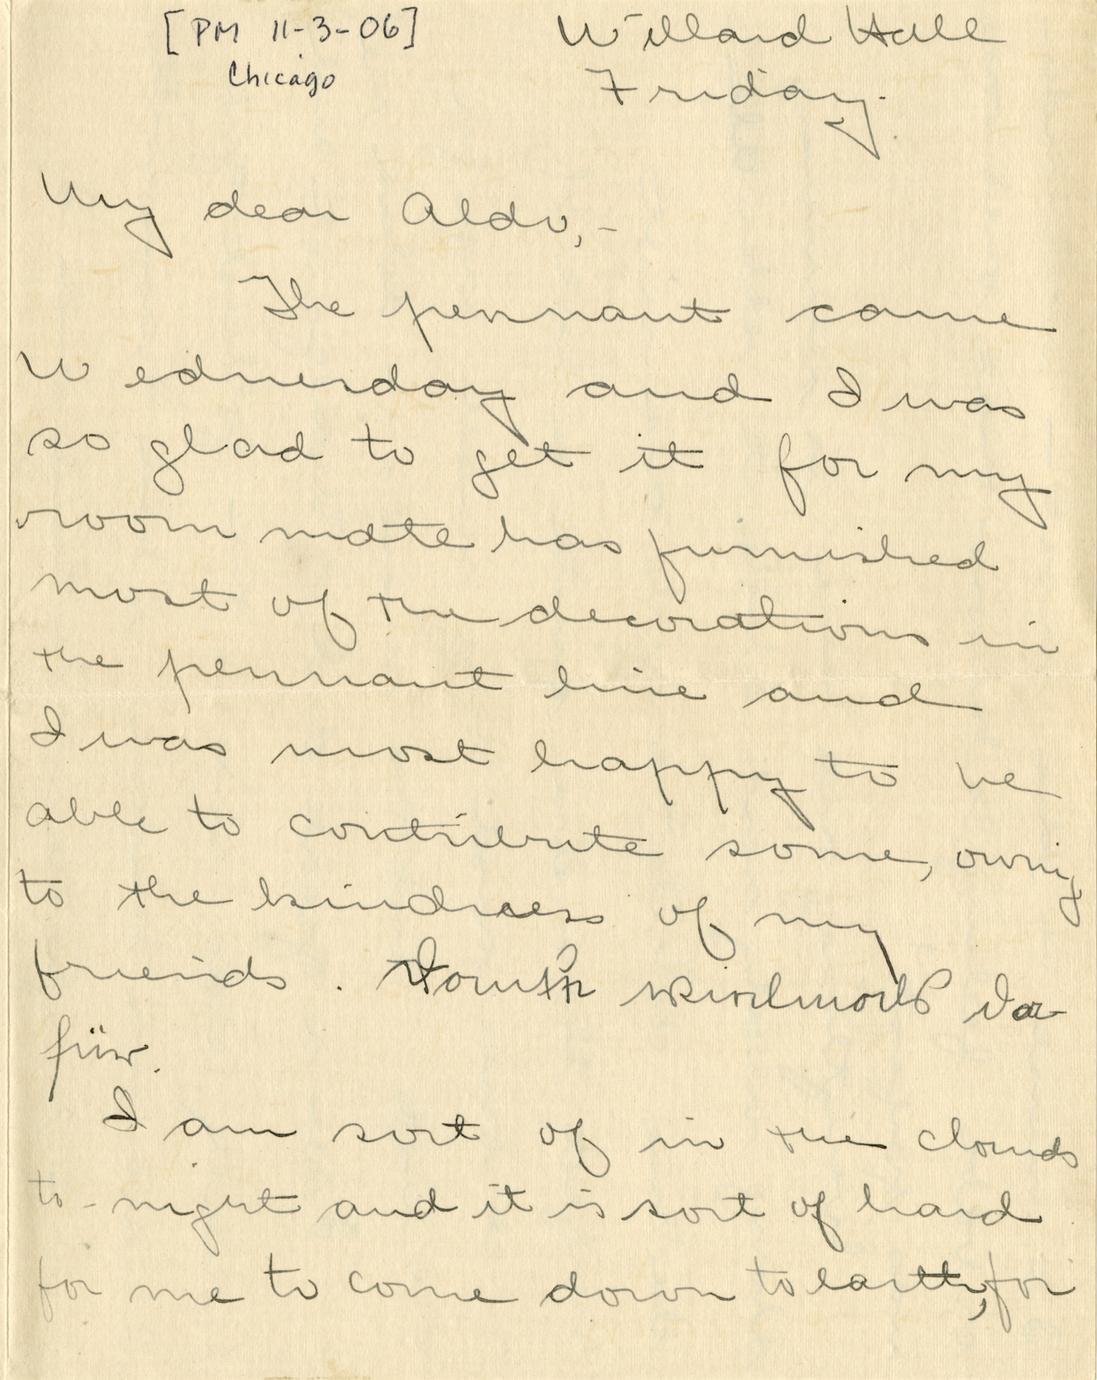 [PM 11-3-06]
Chicago
Willard Hall
Friday.
My dear Aldo,-
The pennant came
Wednesday and I was
so glad to get it for my
room mate has furnished
most of the decorations in
the pennant line and
I was most happy to be
able to contribute some, owing
to the kindness of my
friends. Danke vielmals da-
für.
I am sort of in the clouds
to-night and it is sort of hard
for me to come down to earth, for